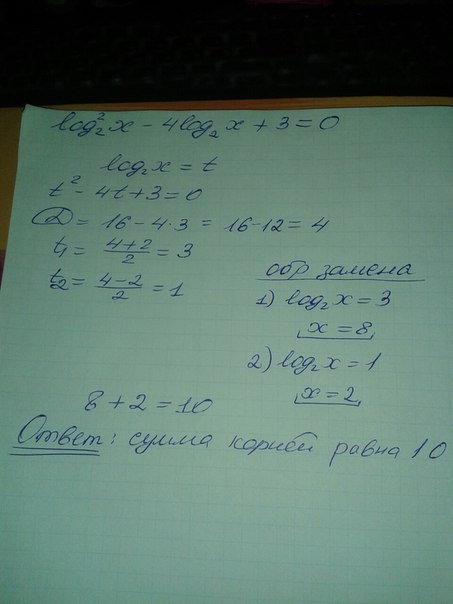 log₂²x - 4log₂x + 3 = 0
log₂x = t
t² - 4t + 3 = 0
D = 16 - 4·3 = 16 - 12 = 4
t₁ = (4+2)/2 = 3
t₂ = (4-2)/2 = 1
обр замена
1) log₂x = 3
x = 8
2) log₂x = 1
x = 2
8 + 2 = 10
Ответ: сумма корней равна 10